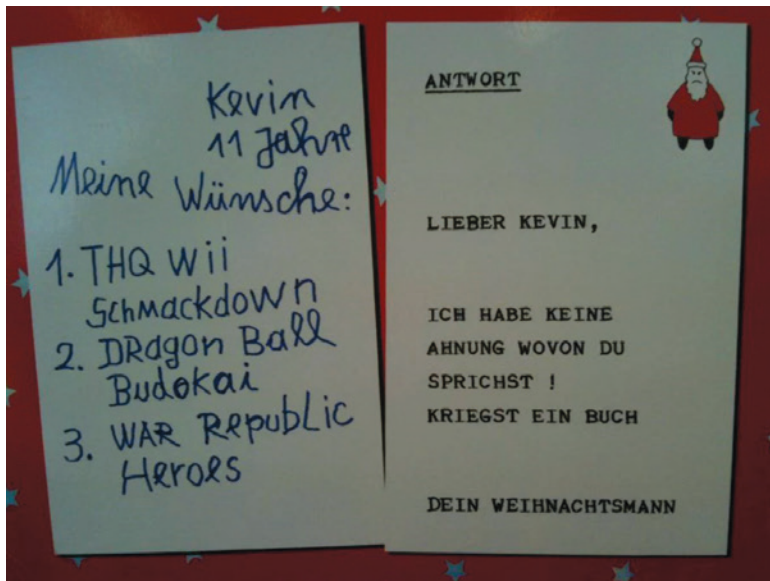 Kevin
11 Jahre
Meine Wünsche:
1. THQ Wii
Schmackdown
2. DRagon Ball
Budokai
3. WAR Republic
Heroes
ANTWORT
LIEBER KEVIN,
ICH HABE KEINE
AHNUNG WOVON DU
SPRICHST !
KRIEGST EIN BUCH
DEIN WEIHNACHTSMANN